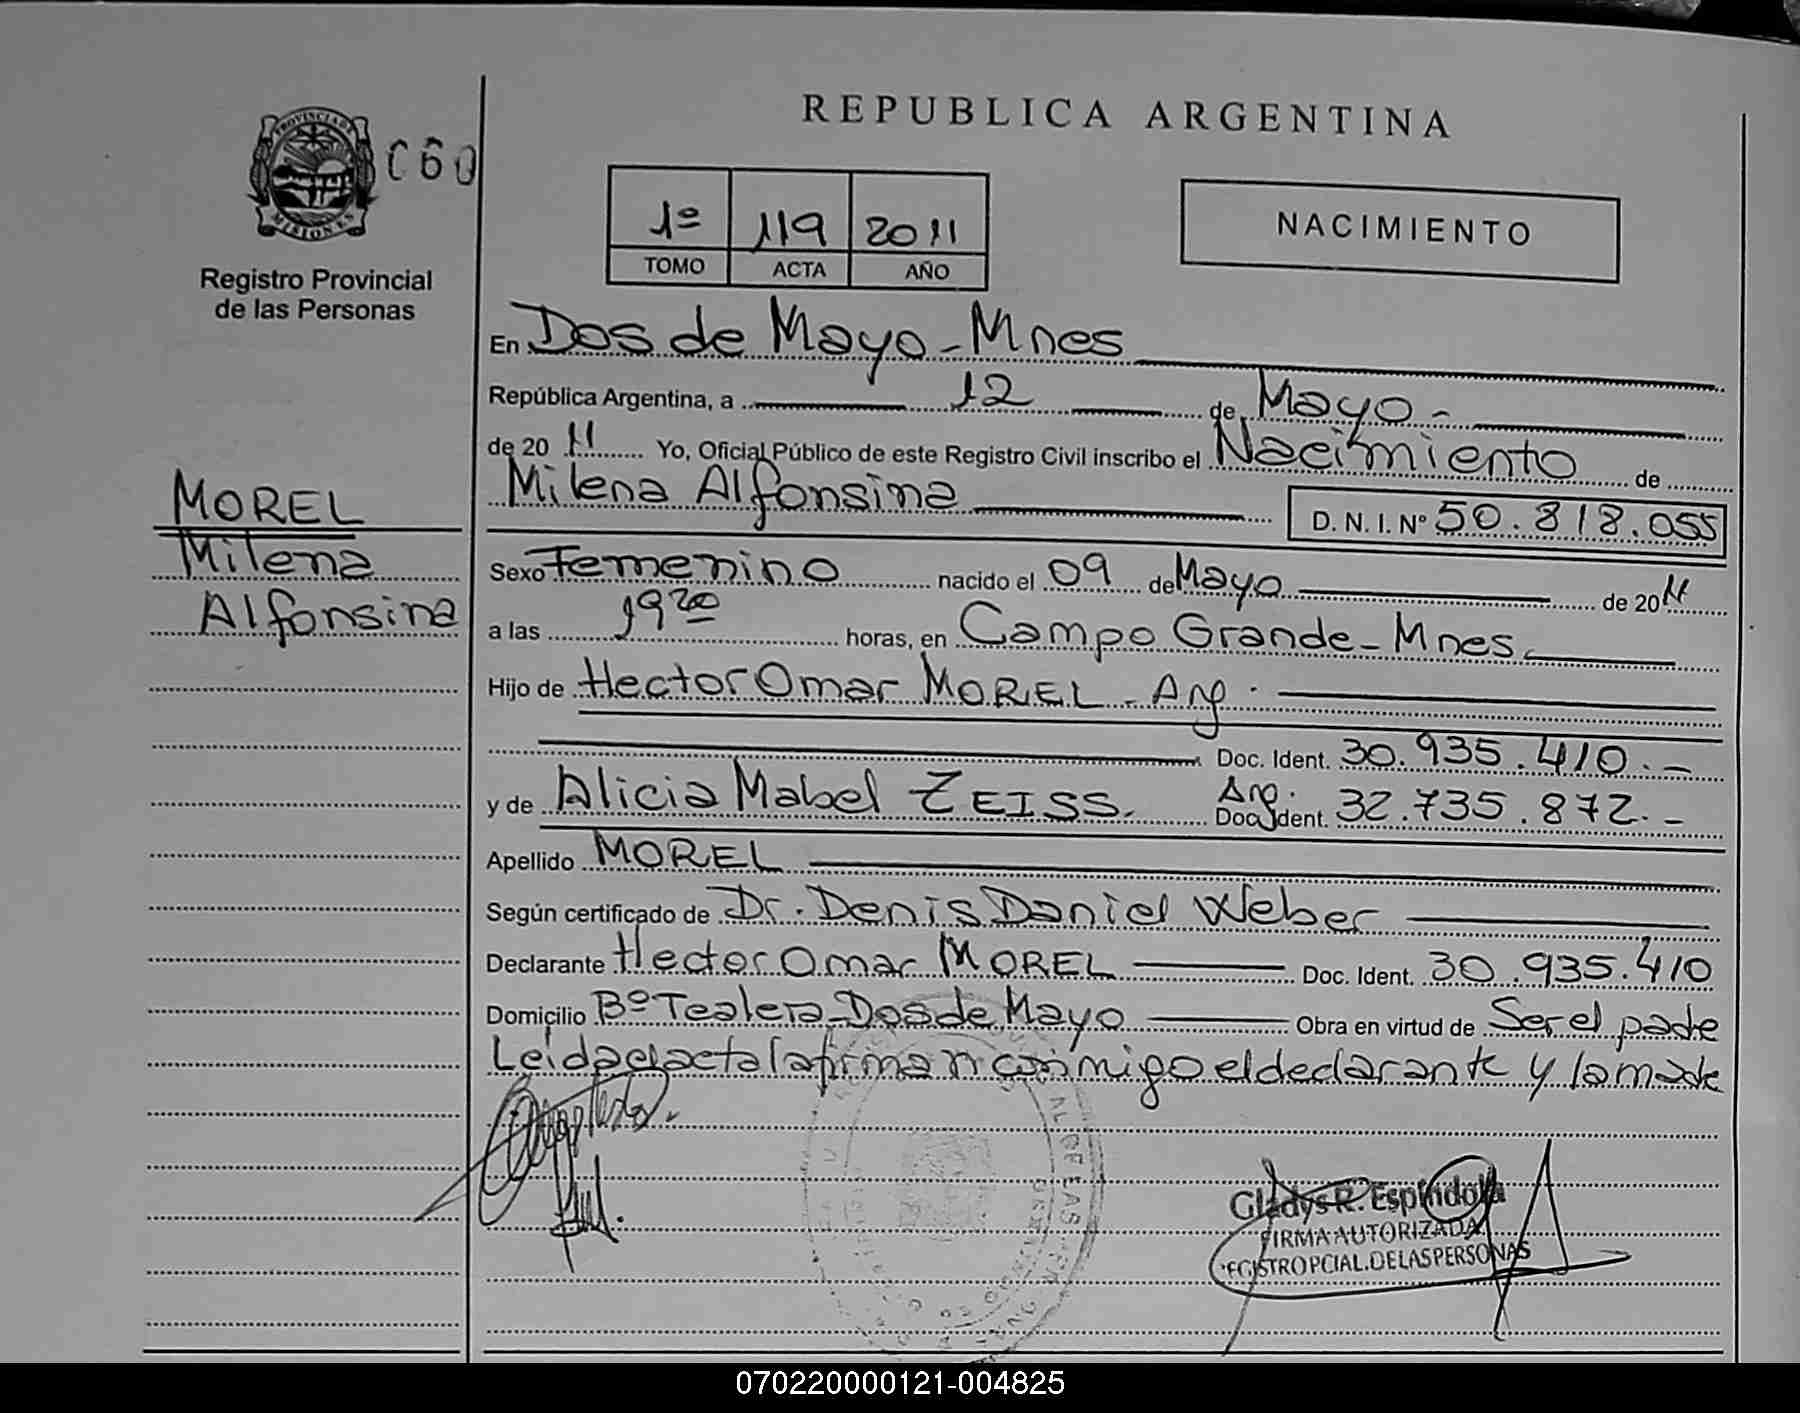 REPUBLICA ARGENTINA
PROVINCIA DE
MISIONES
C60
Registro Provincial
de las Personas
1º 119 2011
TOMO ACTA AÑO
NACIMIENTO
En Dos de Mayo - Mnes
República Argentina, a 12 de Mayo -
de 20 11 Yo, Oficial Público de este Registro Civil inscribo el Nacimiento de
Milena Alfonsina D. N. I. Nº 50.818.055
MOREL
Milena
Alfonsina
Sexo Femenino nacido el 09 de Mayo de 20 11
a las 19 20 horas, en Campo Grande - Mnes.
Hijo de Hector Omar MOREL - Arg.
Doc. Ident. 30.935.410.-
y de Alicia Mabel ZEISS. Arg. Doc. Ident. 32.735.872.-
Apellido MOREL
Según certificado de Dr. Denis Daniel Weber
Declarante Hector Omar MOREL Doc. Ident. 30.935.410
Domicilio Bº Tealera - Dos de Mayo Obra en virtud de Ser el padre
Leida el acta la firman conmigo el declarante y la madre
Gladys R. Espindola
FIRMA AUTORIZADA
REGISTRO PCIAL. DE LAS PERSONAS
070220000121-004825